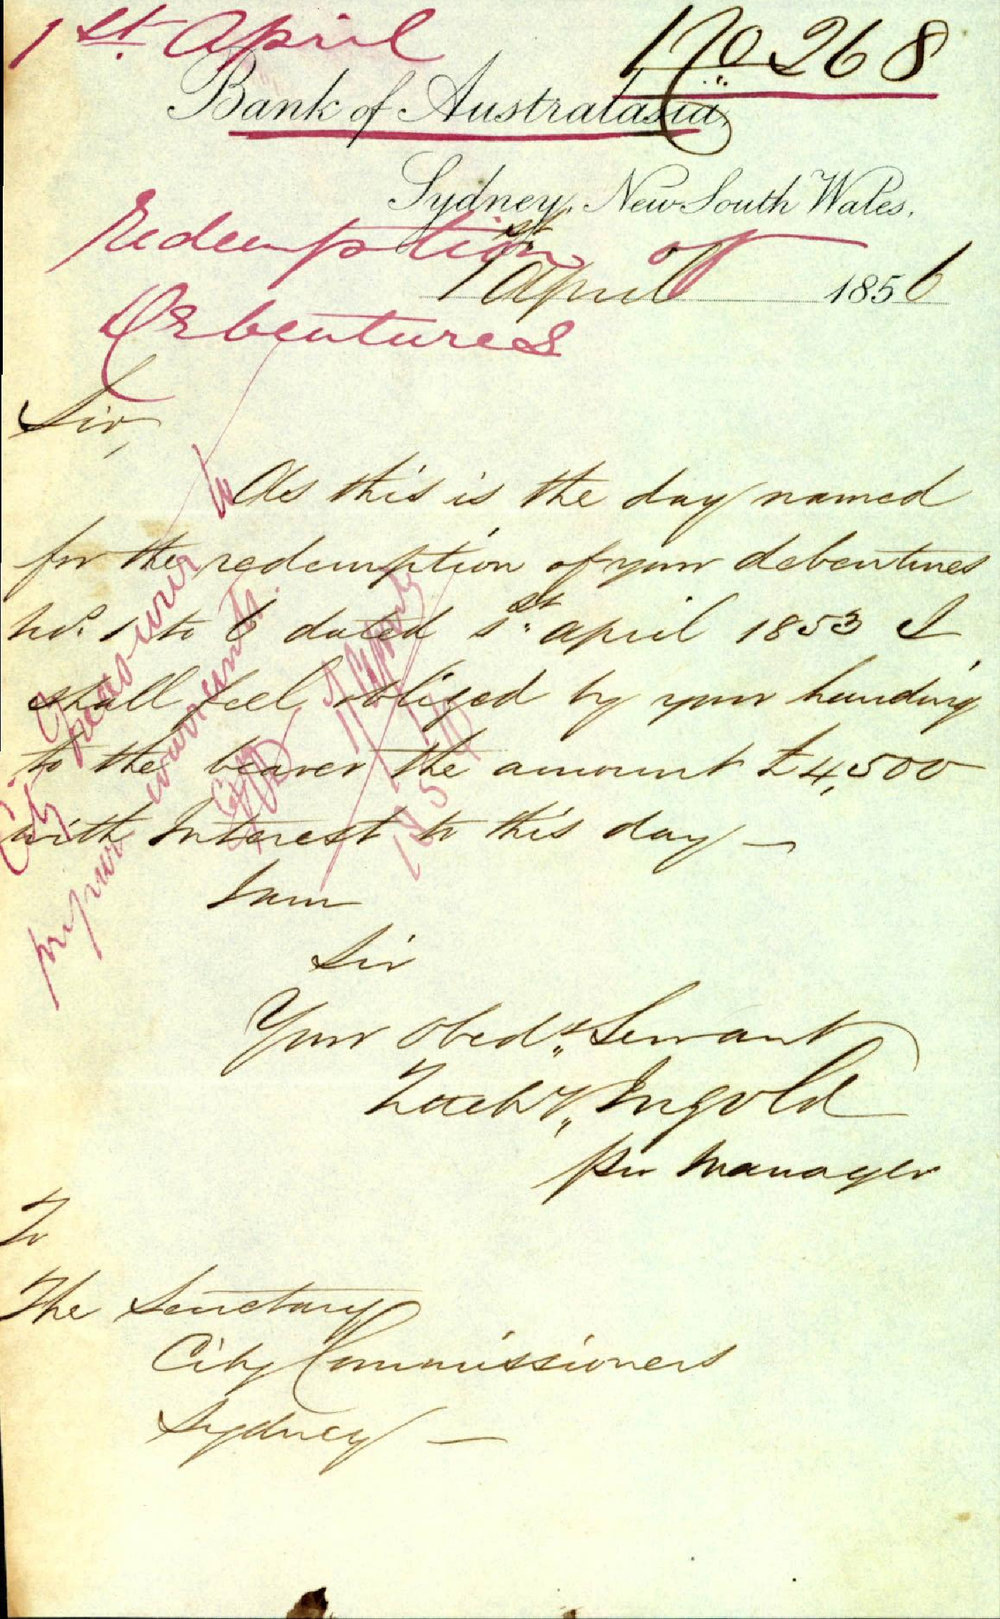 1st. April
No 268
Bank of Australasia,
Sydney, New South Wales,
Redemption of
Debentures
1st. April 1856
Sir,
As this is the day named
for the redemption of your debentures
No. 1 to 6 dated 1st. April 1853 I
shall feel obliged by your handing
to the bearer the amount £4,500
with Interest to this day —
I am
Sir
Your Obedt. Servant
Ingold
per Manager
To
The Secretary
City Commissioners
Sydney —
City Treasurer to
prepare warrants.
1 April
1856